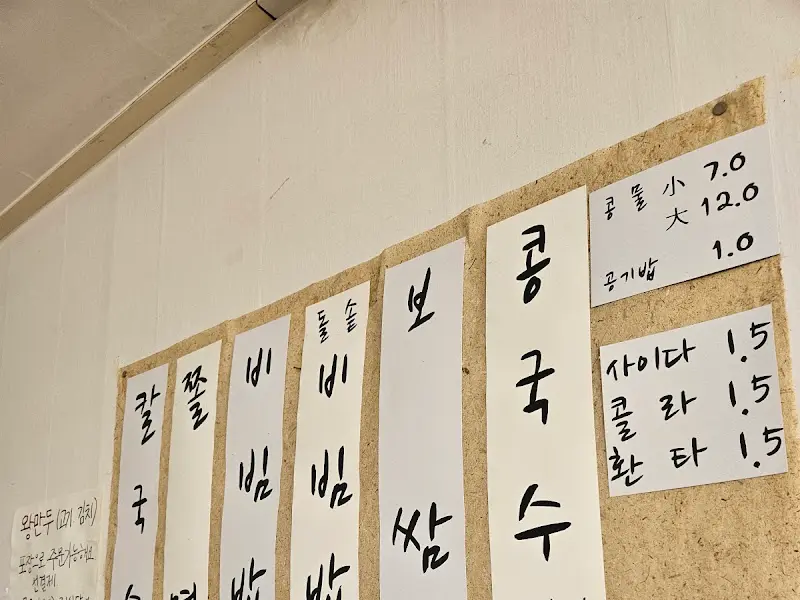 왕만두(고기 김치)
포장으로 주문가능하세요
선결제
칼국수
쫄면
비빔밥
돌솥
비빔밥
보쌈
콩국수
콩물 小 7.0
大 12.0
공기밥 1.0
사이다 1.5
콜라 1.5
환타 1.5